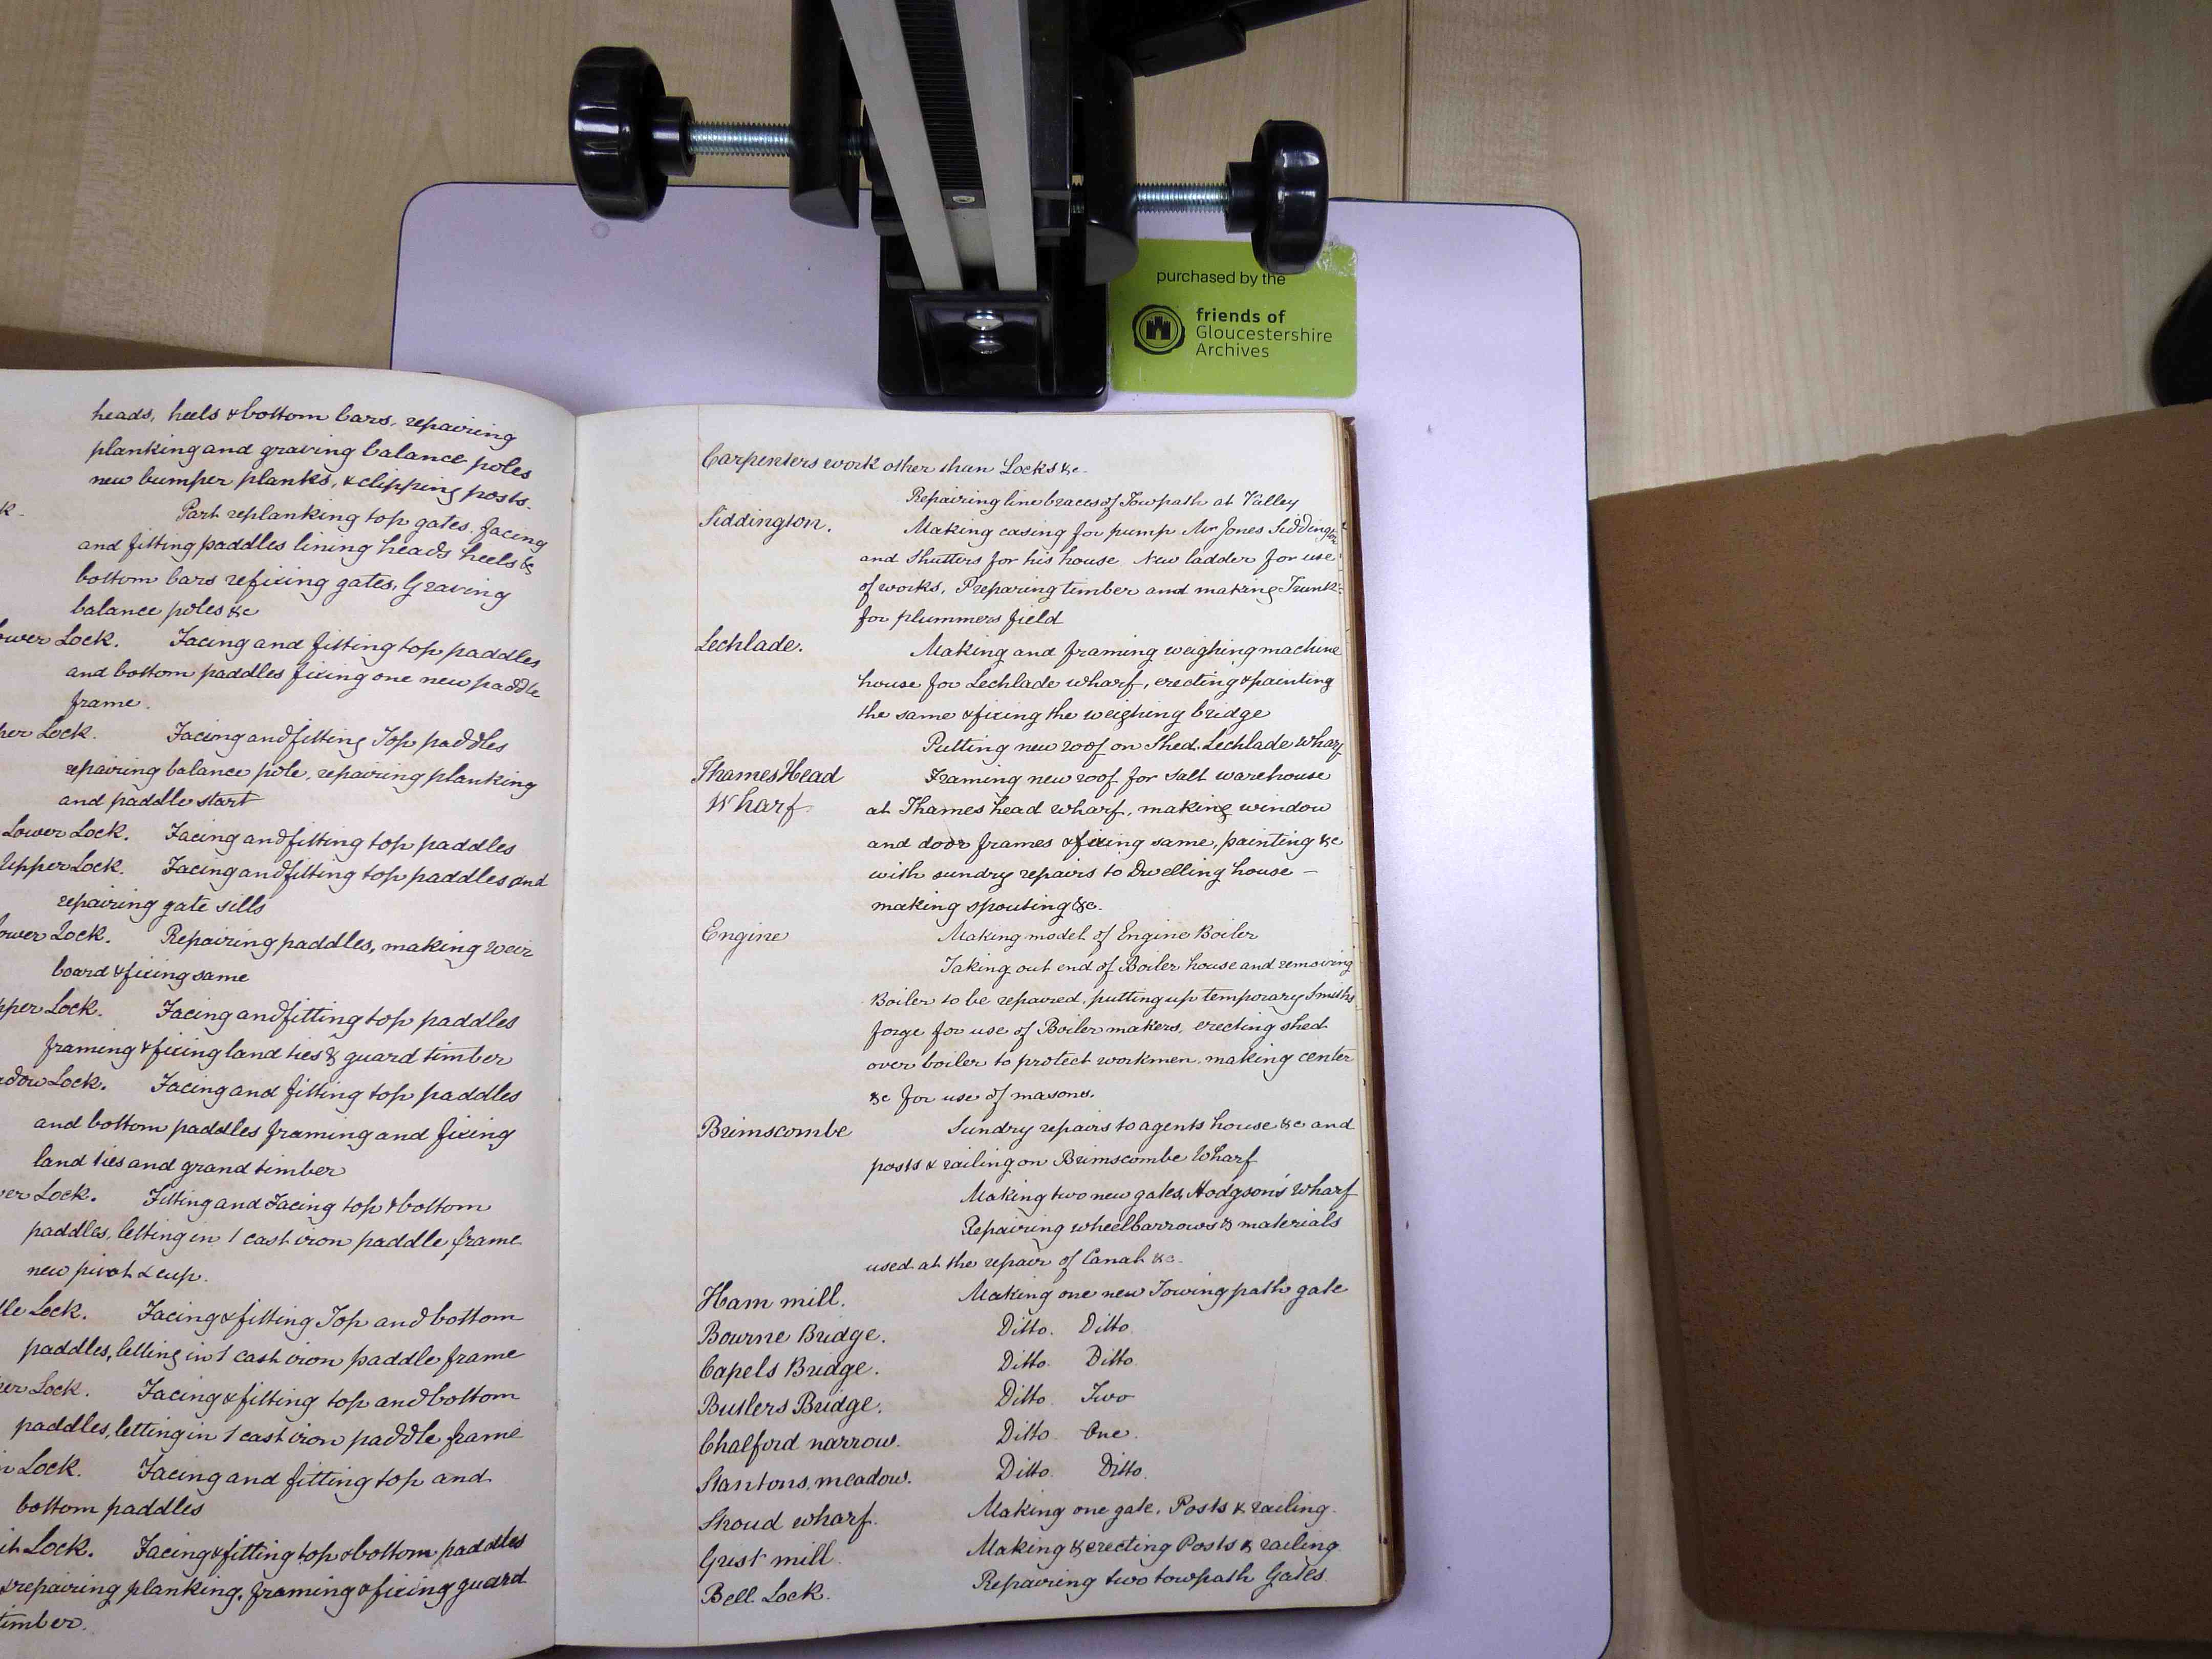 purchased by the
friends of
Gloucestershire
Archives
heads, heels & bottom bars, repairing
planking and graving balance poles
new bumper planks, & clipping posts.
k. Part replanking top gates, facing
and fitting paddles lining heads heels &
bottom bars refixing gates, Graving
balance poles &c
ower Lock. Facing and fitting top paddles
and bottom paddles fixing one new paddle
frame.
per Lock. Facing and fitting Top paddles
repairing balance pole, repairing planking
and paddle start
Lower Lock. Facing and fitting top paddles
Upper Lock. Facing and fitting top paddles and
repairing gate sills
ower Lock. Repairing paddles, making weir
board & fixing same
pper Lock. Facing and fitting top paddles
framing & fixing land ties & guard timber
adow Lock. Facing and fitting top paddles
and bottom paddles framing and fixing
land ties and grand timber
er Lock. Fitting and Facing top & bottom
paddles, letting in 1 cast iron paddle frame
new pivot & cup.
dle Lock. Facing & fitting Top and bottom
paddles, letting in 1 cast iron paddle frame
er Lock. Facing & fitting top and bottom
paddles, letting in 1 cast iron paddle frame
n Lock. Facing and fitting top and
bottom paddles
it Lock. Facing & fitting top & bottom paddles
& repairing planking, framing & fixing guard
timber.
Carpenters work other than Locks &c.
Repairing line braces of Towpath at Valley
Siddington. Making casing for pump Mr Jones Siddington
and Shutters for his house New ladder for use
of works, Preparing timber and making Trunk
for plummers field
Lechlade. Making and framing weighing machine
house for Lechlade wharf, erecting & painting
the same & fixing the weighing bridge
Putting new roof on Shed. Lechlade Wharf
Thames Head Framing new roof for Salt warehouse
Wharf at Thames head wharf, making window
and door frames & fixing same, painting &c
with sundry repairs to Dwelling house –
making spouting &c.
Engine Making model of Engine Boiler
Taking out end of Boiler house and removing
Boiler to be repaired, putting up temporary Smiths
forge for use of Boiler makers, erecting shed
over boiler to protect workmen. making center
&c for use of masons.
Brimscombe Sundry repairs to agents house &c and
posts & railing on Brimscombe Wharf
Making two new gates, Hodgson's Wharf
Repairing wheelbarrows & materials
used at the repair of Canal &c.
Ham mill. Making one new Towing path gate
Bourne Bridge. Ditto. Ditto
Capels Bridge. Ditto. Ditto
Butlers Bridge. Ditto. Two
Chalford narrow. Ditto. One.
Stantons meadow. Ditto. Ditto.
Stroud wharf. Making one gate, Posts & railing.
Grist mill. Making & erecting Posts & railing
Bell Lock. Repairing two towpath Gates.